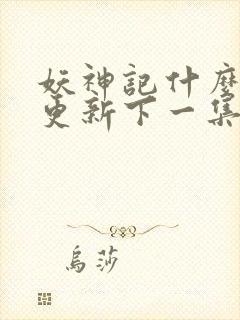 妖神記什麼
更新下一集
烏莎